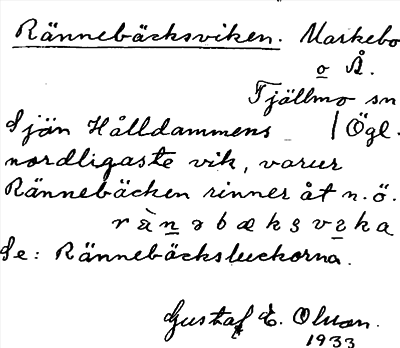 Rännebäcksviken. Markebo
o Å.
Tjällmo sn
Sjön Hålldammens / Ögl.
nordligaste vik, varur
Rännebäcken rinner åt n.ö.
rànəbæksvika
Se: Rännebäcksluckorna.
Gustaf E. Olson.
1933